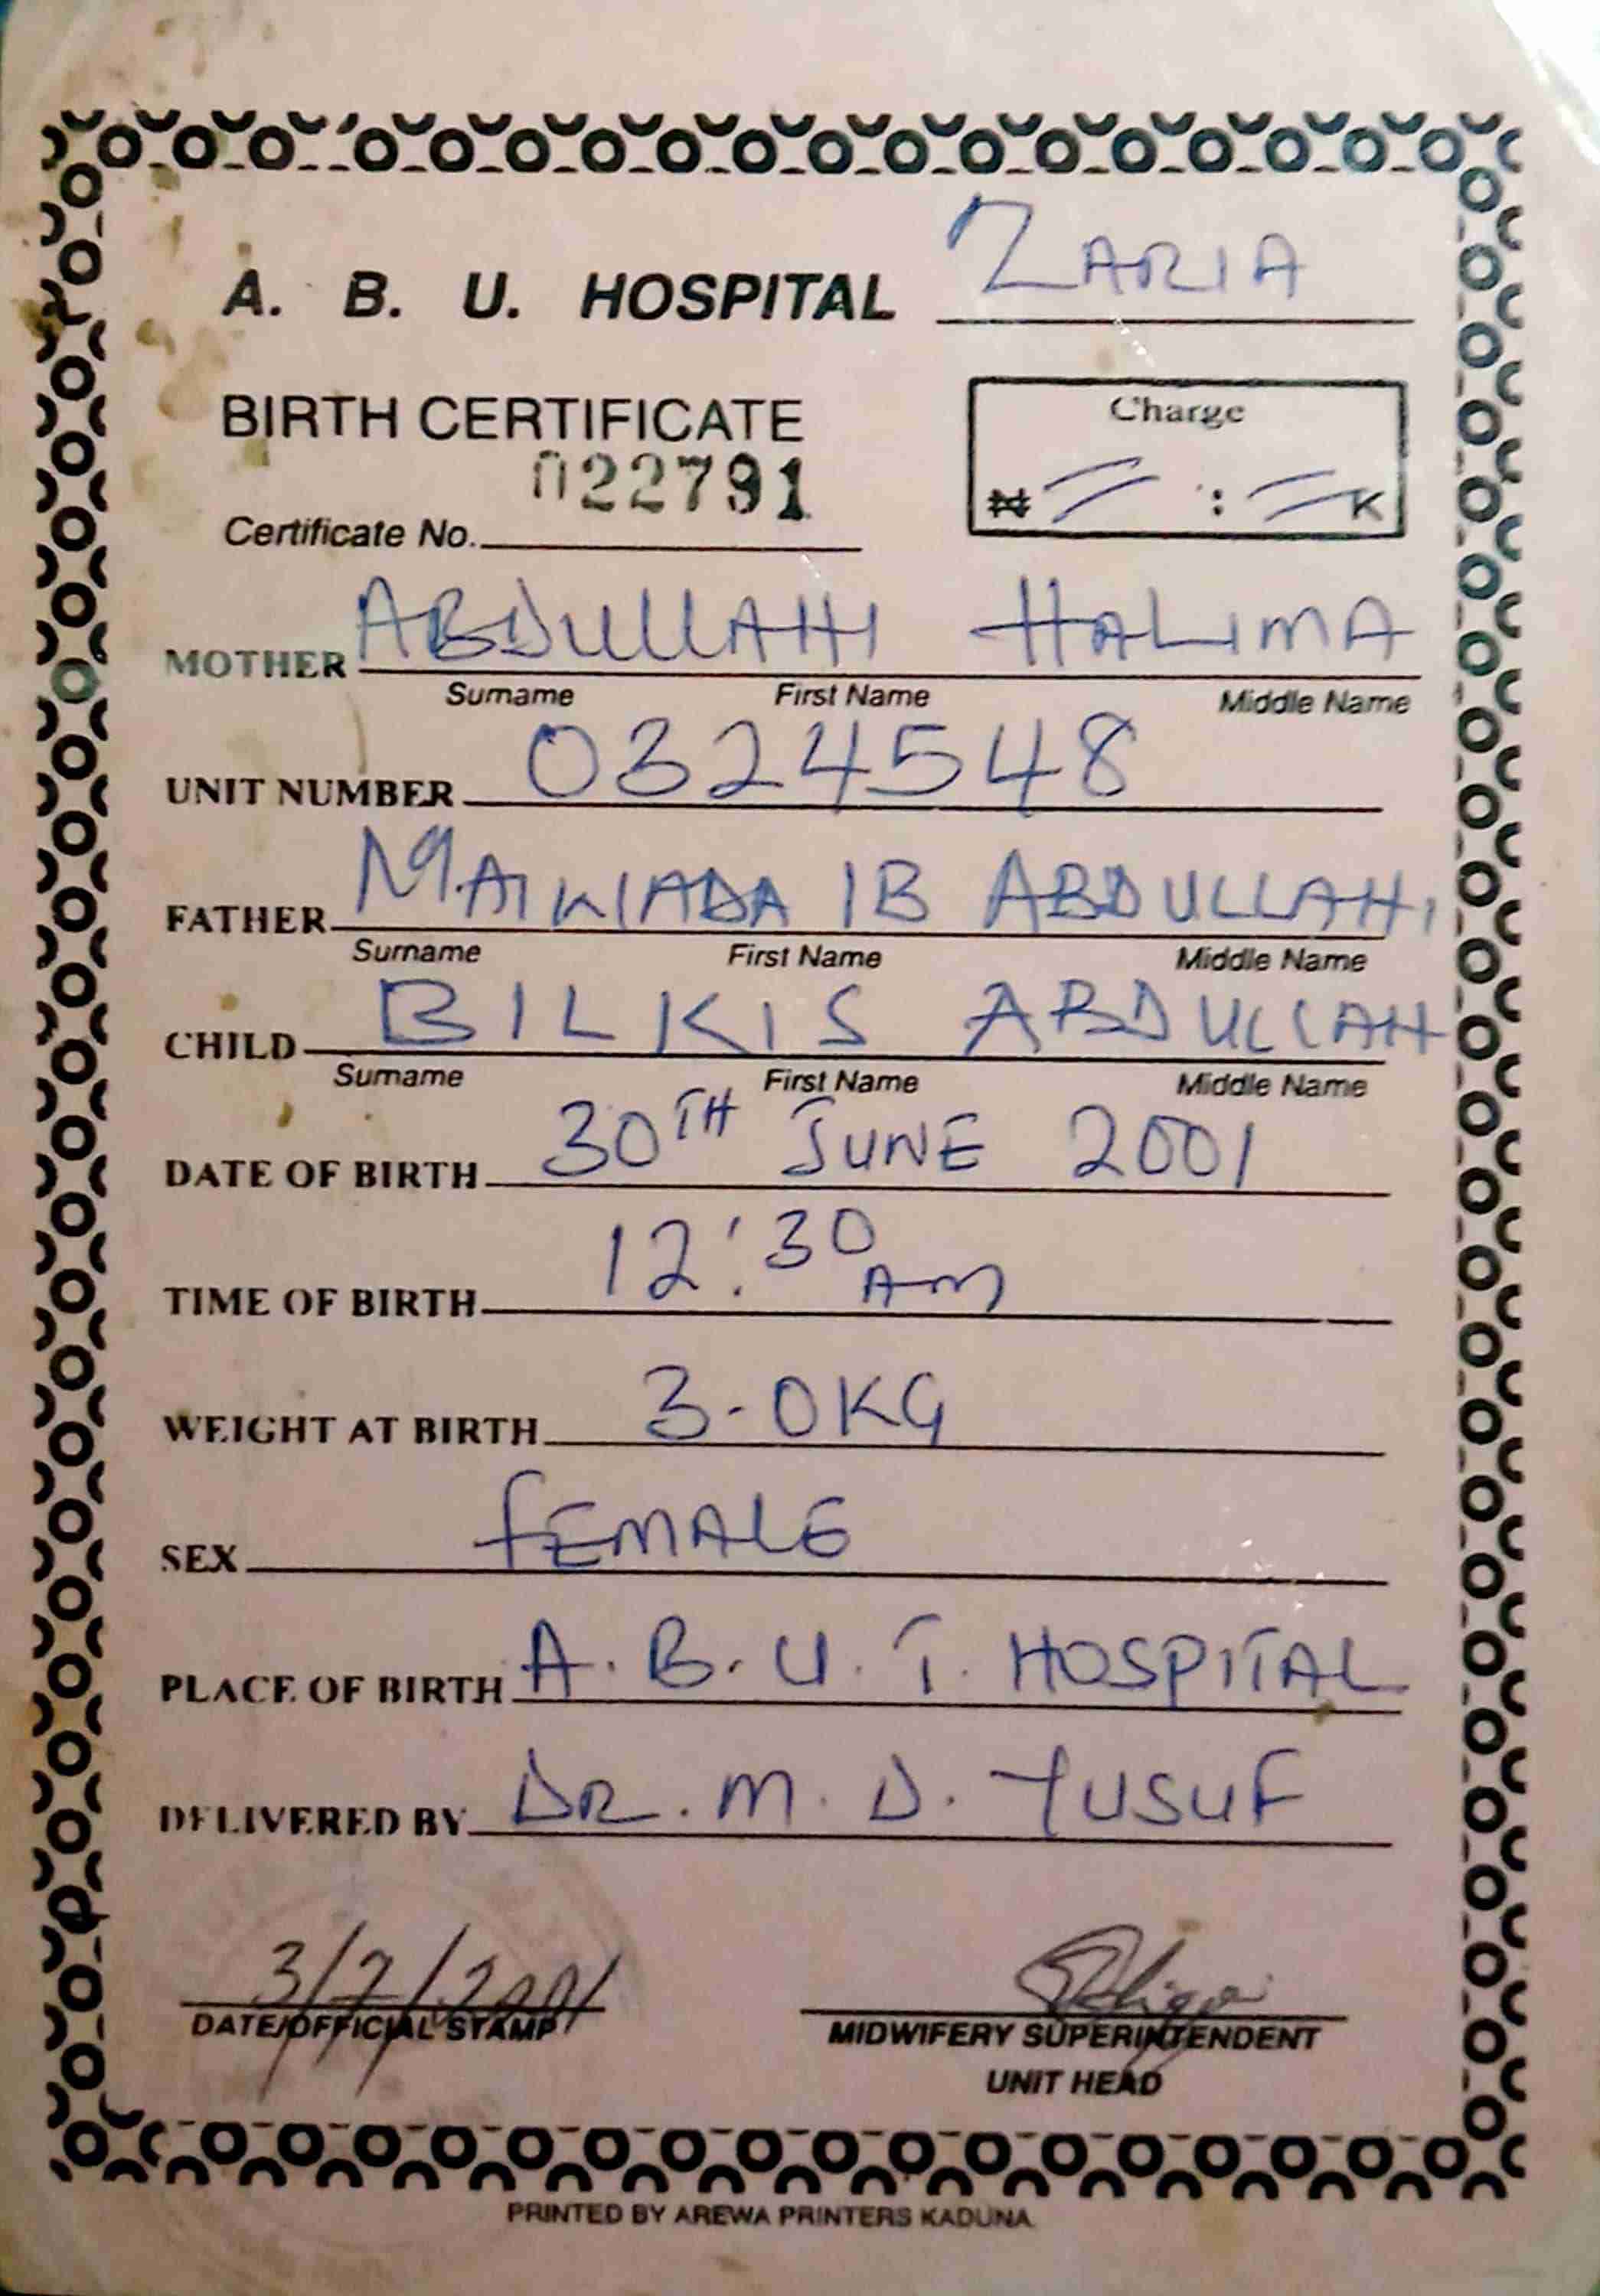 A. B. U. HOSPITAL ZARIA
BIRTH CERTIFICATE
Charge
022791
₦ : K
Certificate No.
MOTHER ABDULLAHI HALIMA
Surname First Name Middle Name
UNIT NUMBER 0324548
FATHER MAIWADA IB ABDULLAHI
Surname First Name Middle Name
CHILD BILKIS ABDULLAH
Surname First Name Middle Name
DATE OF BIRTH 30TH JUNE 2001
TIME OF BIRTH 12:30 AM
WEIGHT AT BIRTH 3.0KG
SEX FEMALE
PLACE OF BIRTH A.B.U.T. HOSPITAL
DELIVERED BY DR. M. D. YUSUF
3/7/2001
DATE/OFFICIAL STAMP MIDWIFERY SUPERINTENDENT
UNIT HEAD
PRINTED BY AREWA PRINTERS KADUNA